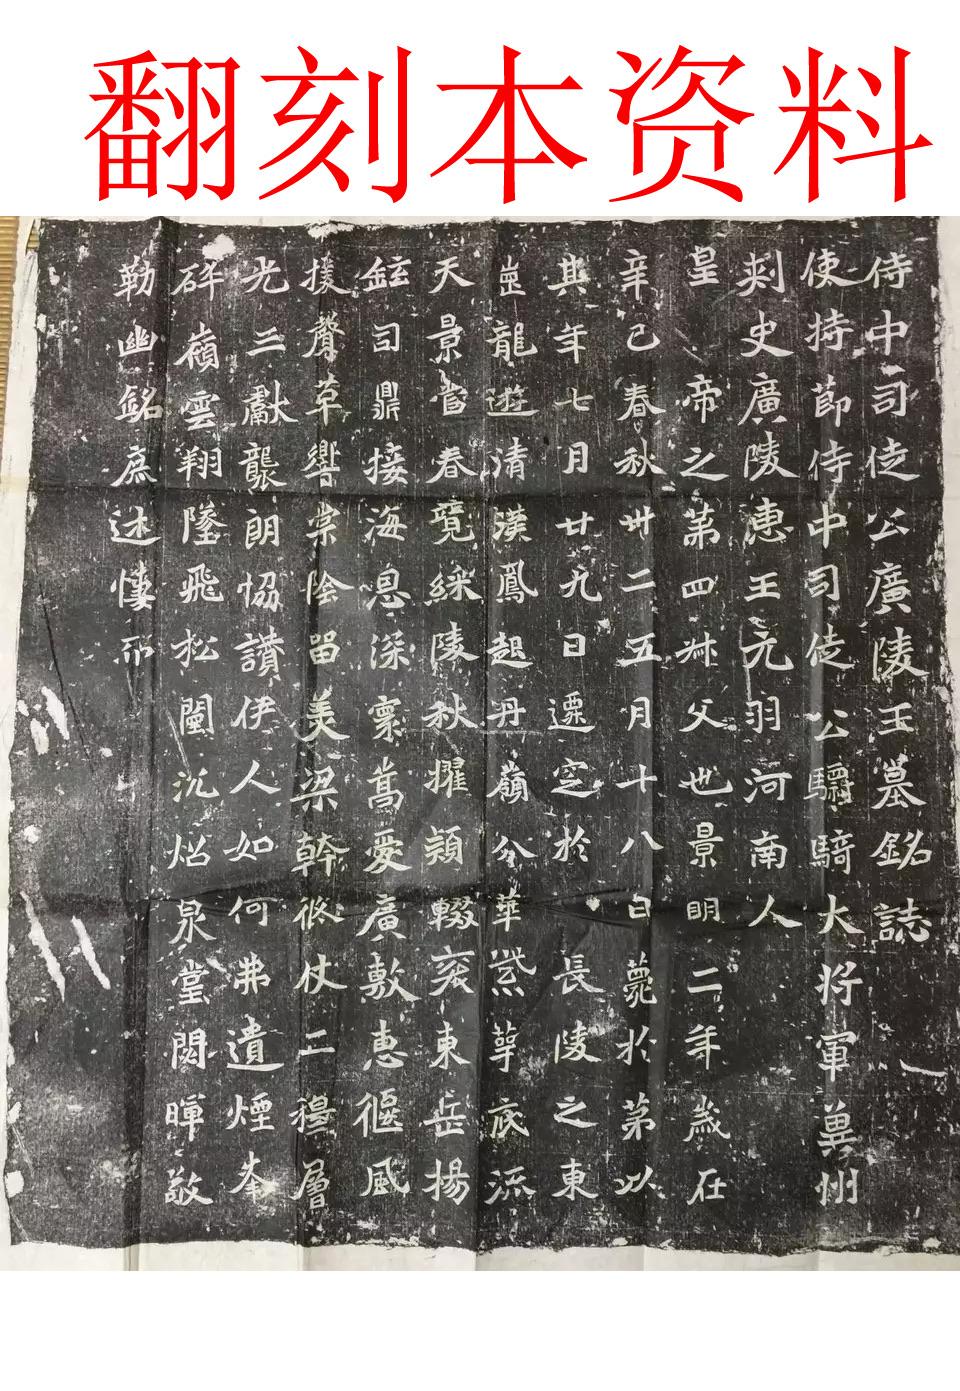 翻刻本资料
侍中司徒公廣陵王墓銘誌
使持節侍中司徒公驃騎大將軍冀州
刺史廣陵惠王元羽河南人
皇帝之第四叔父也景明二年歲在
辛巳春秋卅二五月十八日薨於第以
其年七月廿九日遷窆於長陵之東
崑龍遊清漢鳳起丹嶺分華紫萼底流
天景曾春寬綵陵秋擢穎輟袞東岳揚
鉉司鼎接海息深寮嵩愛廣敷惠偃風
援聲草響棠陰留美梁幹俻仗二穆層
光三獻襲朗協讚伊人如何弗遺煙峯
碎嶺雲翔墜飛松闈沉焰泉堂閟暉敬
勒幽銘庶述悽而